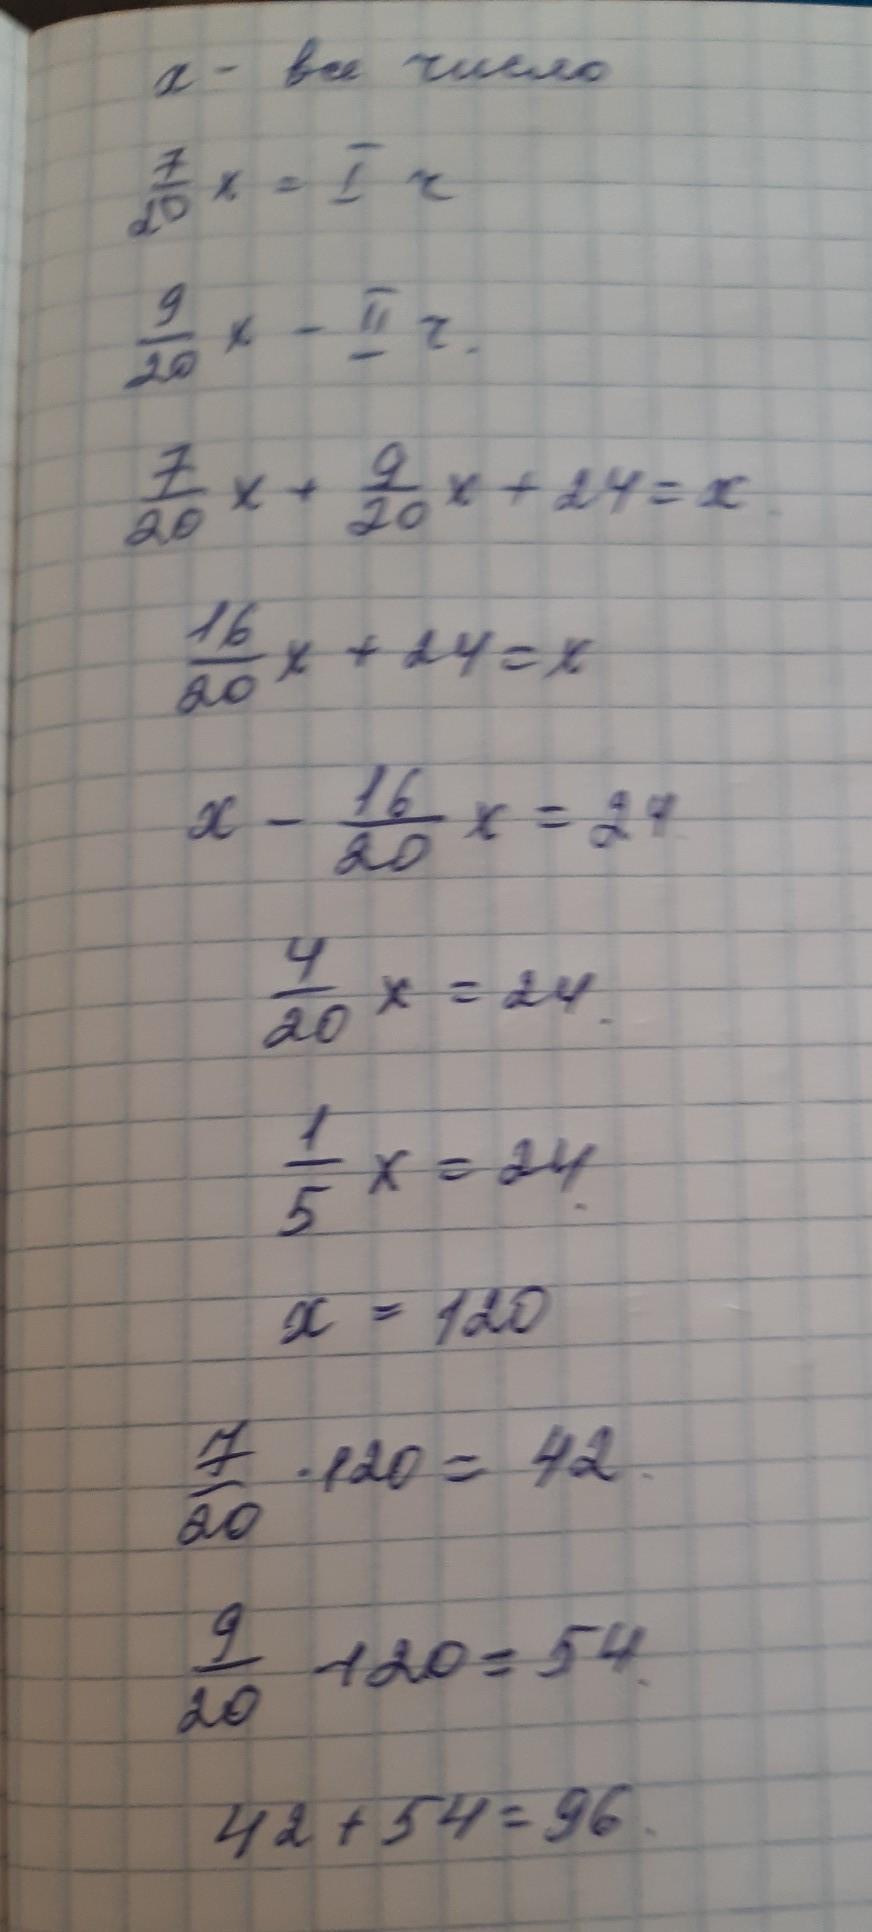 x - все число
7/20 x = I ч
9/20 x - II ч.
7/20 x + 9/20 x + 24 = x.
16/20 x + 24 = x
x - 16/20 x = 24
4/20 x = 24.
1/5 x = 24.
x = 120
7/20 · 120 = 42.
9/20 · 120 = 54.
42 + 54 = 96.